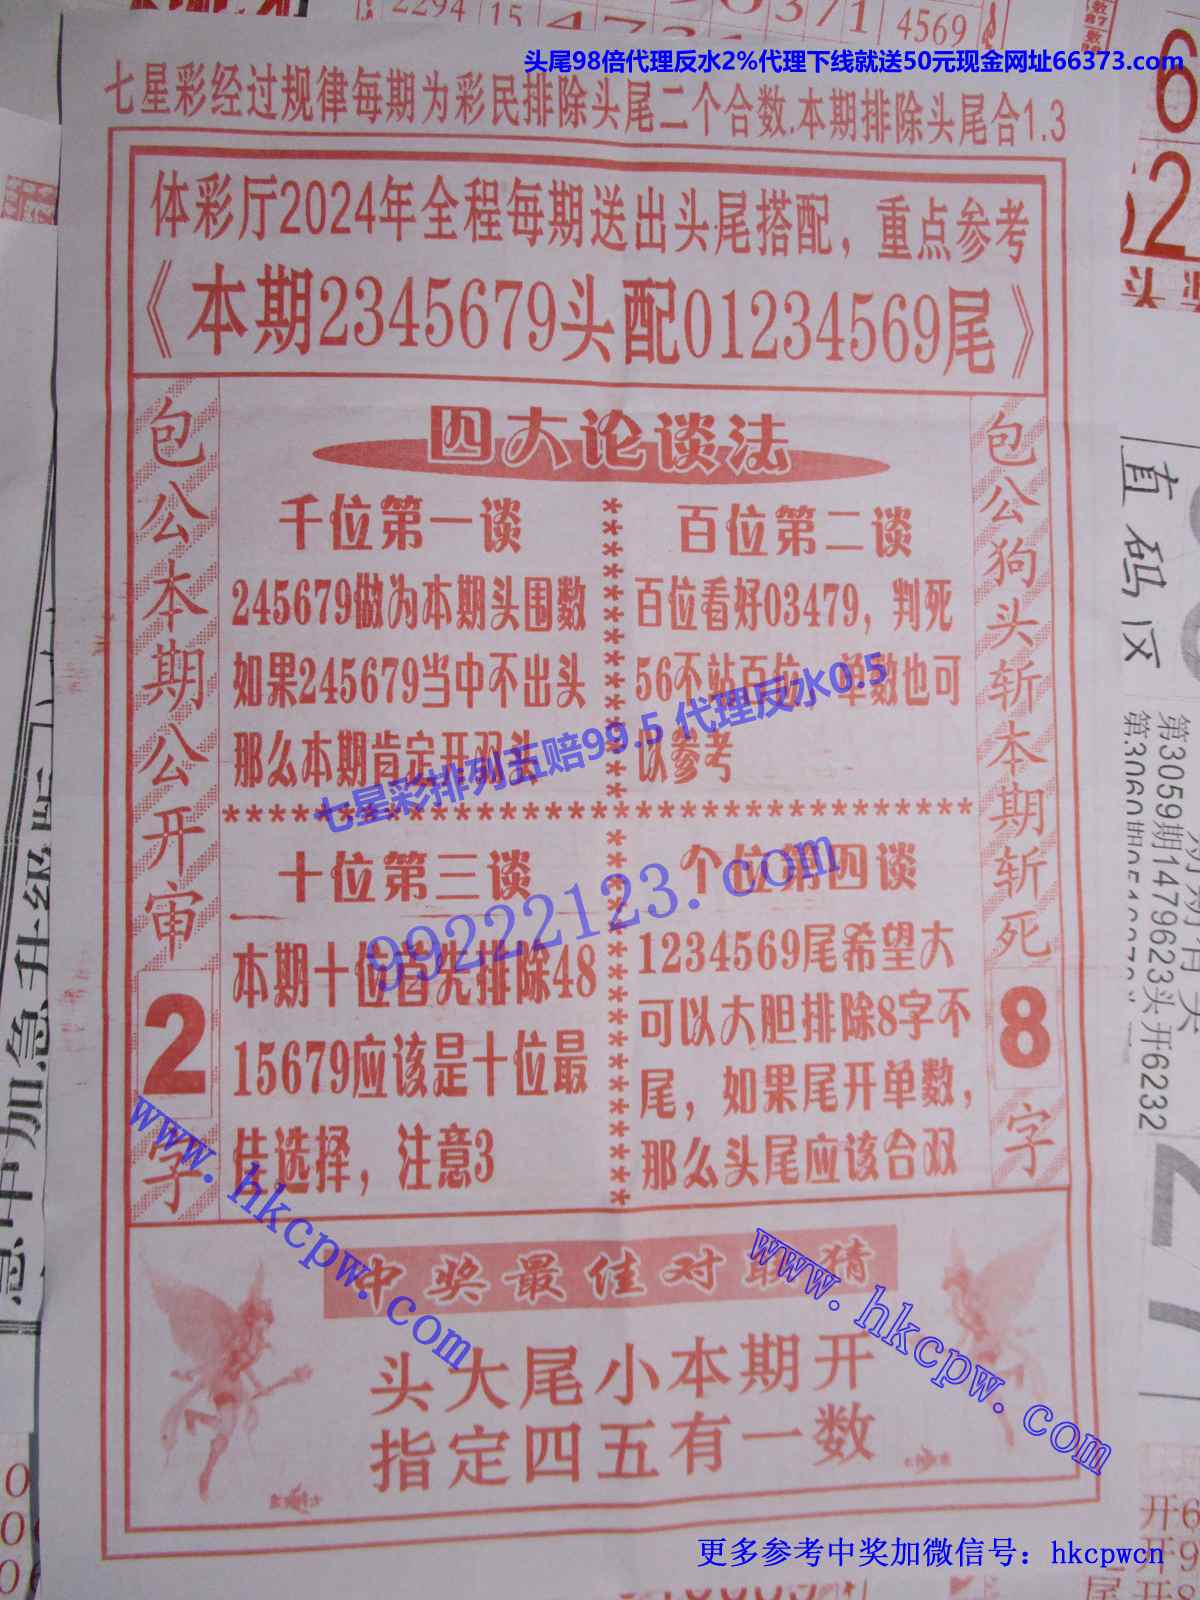 2294 15 4731 0371 4569
头尾98倍代理反水2%代理下线就送50元现金网址66373.com
七星彩经过规律每期为彩民排除头尾二个合数.本期排除头尾合1.3
体彩厅2024年全程每期送出头尾搭配，重点参考
《本期2345679头配01234569尾》
包公本期公开审2字
四大论谈法
千位第一谈
245679做为本期头围数
如果245679当中不出头
那么本期肯定开双头
百位第二谈
百位看好03479，判死
56不站百位，单数也可
以参考
七星彩排列五赔99.5 代理反水0.5
十位第三谈
本期十位首先排除48
15679应该是十位最
佳选择，注意3
个位第四谈
1234569尾希望大
可以大胆排除8字不
尾，如果尾开单数，
那么头尾应该合双
99222123.com
包公狗头斩本期斩死8字
www.hkcpw.com
www.hkcpw.com
中奖最佳对联猜
头大尾小本期开
指定四五有一数
直码区
第3059期1479623头开6232
更多参考中奖加微信号：hkcpwcn